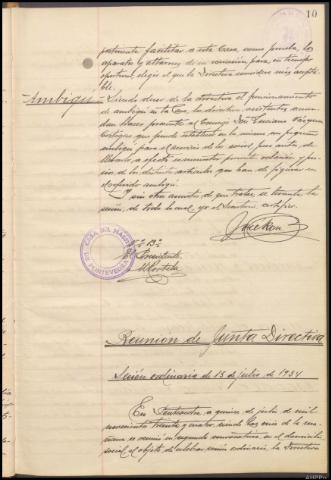 10
portunamente facilitar a esta Casa, como prueba, los
aparatos y altavoz de su concesión para, en tiempo
oportuno, elegir el que la Directiva considere más acepta-
ble.
Ambigú = Siendo deseo de la Directiva el funcionamiento
de ambigú en la Casa, los directivos asistentes acuer-
dan llamar presente al Conserje Don Luciano Vázquez
que puede establecer en la misma un pequeño
ambigú para el servicio de los socios pero antes de
llevarlo a efecto es necesario precio
de los distintos artículos que han de figurar en
el referido ambigú.
Y sin otro asunto de que tratar, se levanta la
sesión, de todo lo cual, yo el Secretario, certifico.
Vº Bº
El Presidente
CASA DEL MAESTRO
DE PONTEVEDRA
Reunión de Junta Directiva
Sesión ordinaria de 15 de julio de 1934
En Pontevedra, a quince de julio de mil
novecientos treinta y cuatro, siendo las once de la ma-
ñana se reunió en segunda convocatoria en el domicilio
social, al objeto de celebrar sesión ordinaria, la Directiva